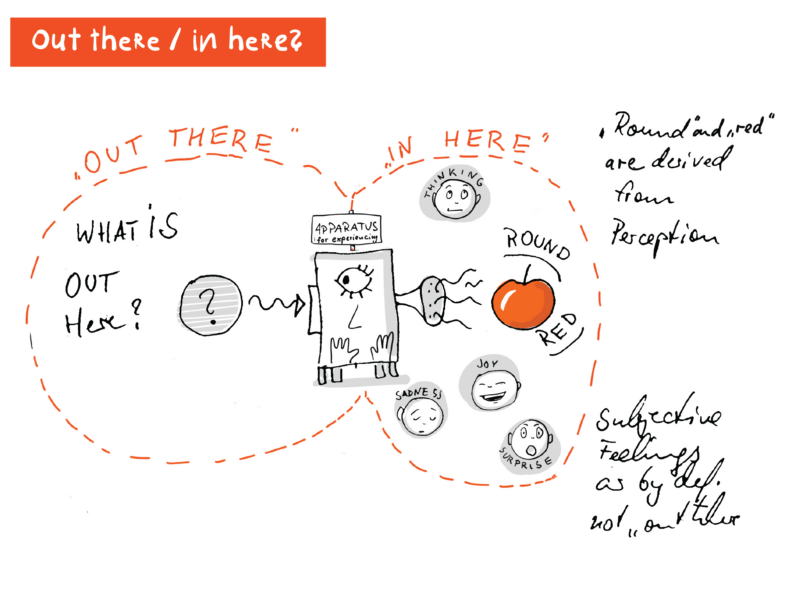 Out there / in here?
„OUT THERE“
„IN HERE“
WHAT IS
OUT
Here?
?
APPARATUS
for experiencing
THINKING
ROUND
RED
JOY
SADNESS
SURPRISE
„Round“ and „red“
are derived
from
Perception
Subjective
Feelings
as by def.
not „out there